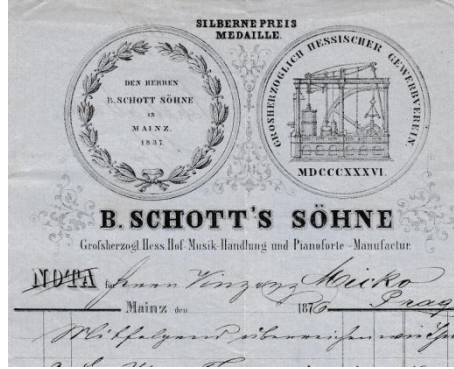 SILBERNE PREIS
MEDAILLE.
DEN HERREN
B. SCHOTT SÖHNE
IN
MAINZ.
1837.
GROSHERZOGLICH HESSISCHER GEWERBVEREIN.
MDCCCXXXVI.
B. SCHOTT'S SÖHNE
Grofsherzogl. Hess. Hof-Musik-Handlung und Pianoforte-Manufactur.
NOTA für Herrn Vinzenz Micko
Prag
Mainz den 1876
Mitfolgend überreichen wir Ihnen